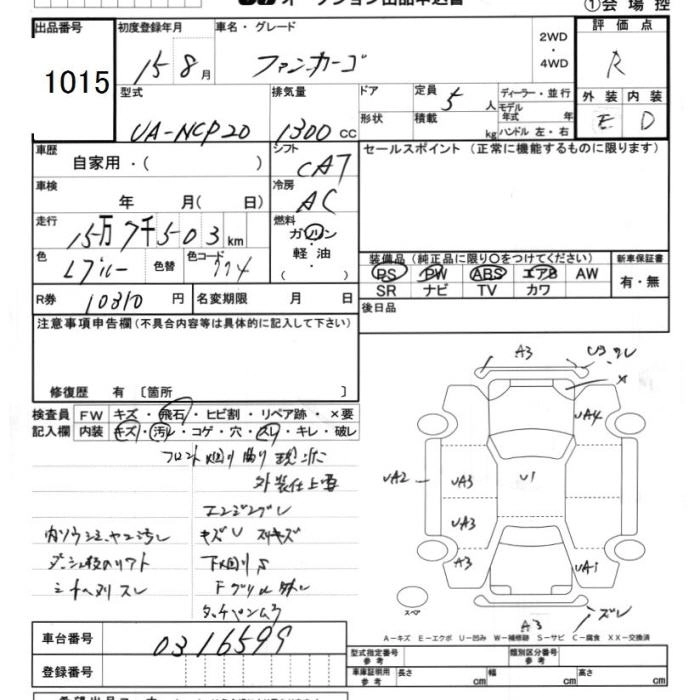 オークション出品申込書 ①会場控
出品番号 初度登録年月 車名・グレード 2WD・4WD 評価点
1015 15年8月 ファンカーゴ R
型式 排気量 ドア 定員 5人 ディーラー・並行 外装 内装
UA-NCP20 1300cc 形状 積載 kg モデル年式 年 ハンドル 左・右 E D
車歴 自家用・( ) シフト CAT セールスポイント(正常に機能するものに限ります)
車検 年 月( 日) 冷房 AC
走行 15万7千503km 燃料 ガソリン・軽油・( )
色 Lブルー 色替 色コード 774 装備品(純正品に限り〇をつけてください) 新車保証書
PS PW ABS エアB AW 有・無
SR ナビ TV カワ
R券 10310円 名変期限 月 日 後日品
注意事項申告欄(不具合内容等は具体的に記入して下さい)
修復歴 有〔箇所 〕
検査員 FW キズ・飛石・ヒビ割・リペア跡・×要
記入欄 内装 キズ・汚レ・コゲ・穴・スレ・キレ・破レ
フロント 廻り 曲り 現状
外装仕上要
キズU スリキズ
下廻りS
A3 U3 ズレ
X
UA4
UA2 UA3 U1
UA3
A3 UA1
スペア A3 ズレ
A-キズ E-エクボ U-凹み W-補修跡 S-サビ C-腐食 XX-交換済
車台番号 0316599 型式指定番号 参考 類別区分番号 参考
登録番号 車庫証明用 参考 長さ cm 幅 cm 高さ cm